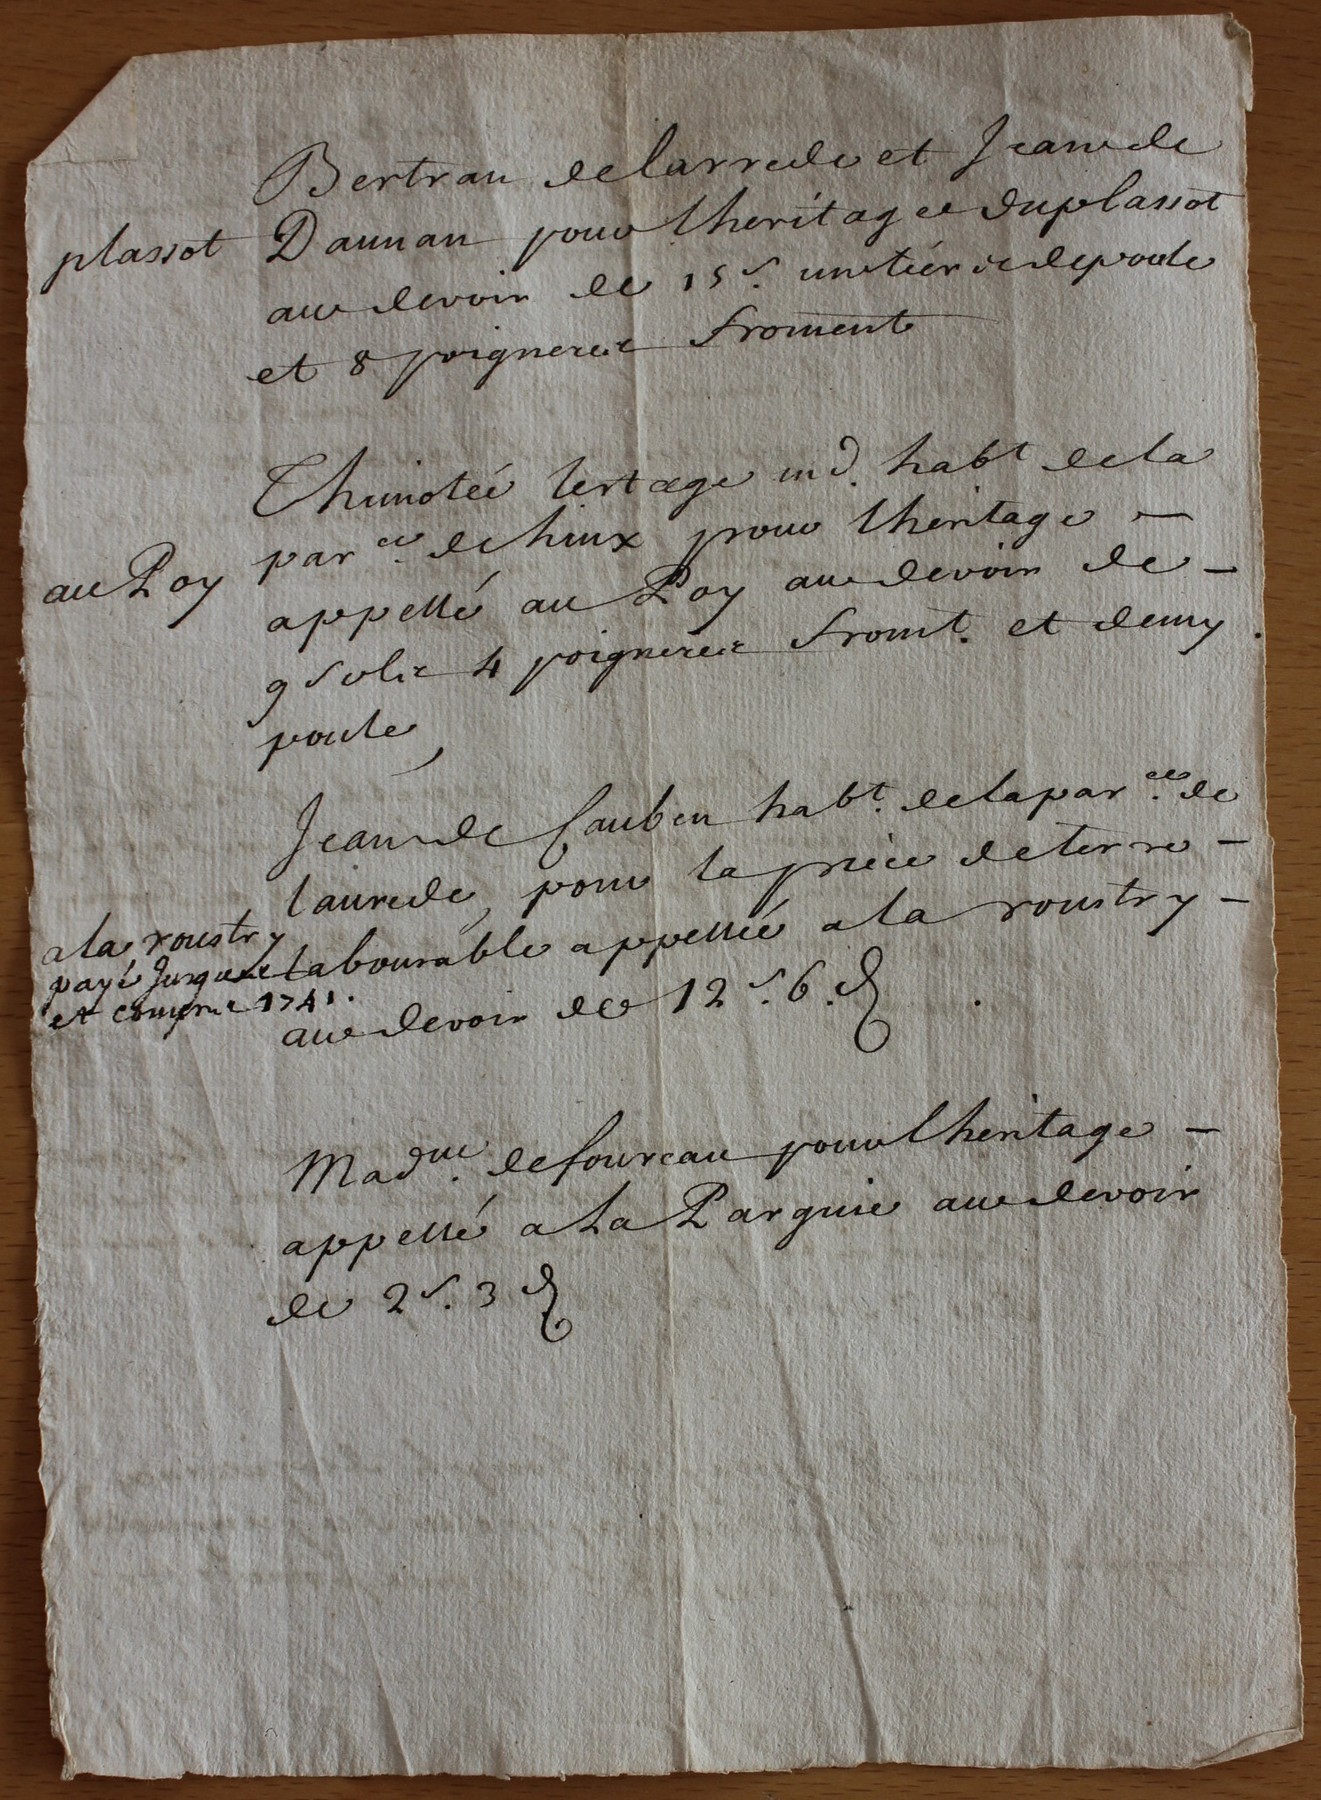 Bertran de larrede et Jean de
plassot Daunan pour lheritage du plassot
au devoir de 15 s. un tiers de poule
et 8 poigneres froment
Thimotéé lertage md. habt de la
parce. de hinx pour lheritage -
au Poy appellé au Poy au devoir de -
9 sols 4 poigneres fromt. et demy
poule
Jean de Cauben habt. de la parce. de
laurede pour la piece de terre -
a la roustry labourable appellée a la roustry -
payé jusques
et compris 1741.
au devoir de 12 s. 6. d
Madme. de foureau pour lheritage -
appellé a la Parguie au devoir
de 2 s. 3 d